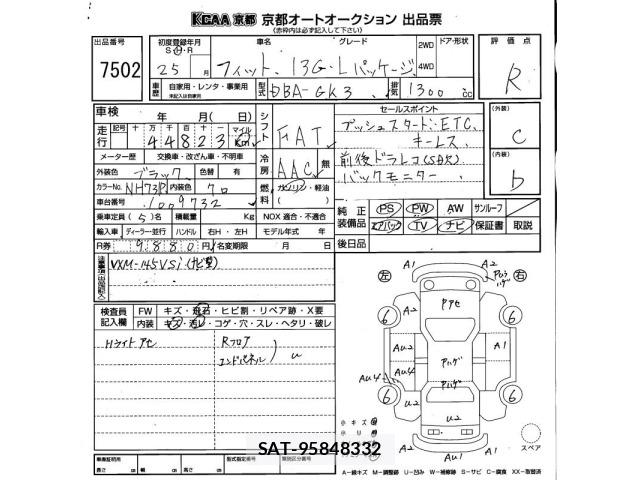 KCAA 京都 京都オートオークション 出品票
(赤枠内は必ず記入して下さい)
出品番号 初度登録年月 車名 グレード 2WD ドア・形状 評価点
7502 S H・R 25 月 フィット 13G・Lパッケージ 4WD R
車歴 自家用・レンタ・事業用 型式 DBA-GK3 排気 1300 cc
未記入は自家用
車検 年 月( 日) シフト FAT セールスポイント (外装)
走行 記号 十 万 千 百 十 マイル km プッシュスタート・ETC C
44823 キーレス
メーター歴 交換車・改ざん車・不明車 冷房 AAC 無 前後ドラレコ(SDR) (内装)
外装色 ブラック 色替 有 バックモニター b
カラーNo. NH731P 内装色 クロ 燃料 ガソリン・軽油
車台番号 1009732
乗車定員 (5)名 積載量 Kg NOX 適合・不適合 純正装備品 PS PW AW サンルーフ
輸入車 ディーラー・並行 ハンドル 右H・左H モデル年式 年 エアバック TV ナビ 保証書 取説
R券 9880 円 名変期限 月 日 後日品
注意事項(出品店記入) VXM-145VSi(ナビ型)
検査員記入欄 FW キズ・飛石・ヒビ割・リペア跡・X要
内装 キズ・汚レ・コゲ・穴・スレ・ヘタリ・破レ
Hライトアセ Rフロア
エンドパネル u
左 右
A1 A2
Pアセ
6 6
AU2 A1
Pハゲ
AU4 AU4 Pハゲ
6 6
U2 A2
U2
小キズ
小U
スペア
AU2 A1
SAT-95848332
車両証明用 長さ cm 幅 cm 高さ cm 型式指定番号 類別区分番号
A―線キズ M―調整跡 U―凹み W―補修跡 S―サビ C―腐食 XX―取替済